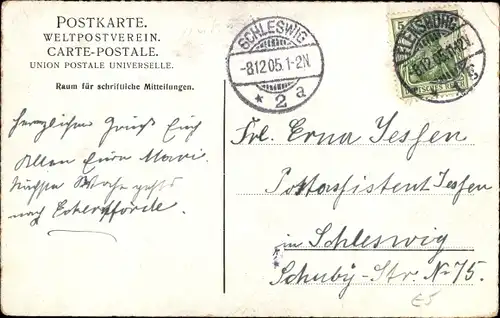 POSTKARTE.
WELTPOSTVEREIN.
CARTE-POSTALE.
UNION POSTALE UNIVERSELLE.
Raum für schriftliche Mitteilungen.
Herzlichen Gruß Euch
Allen Eure Mari.
Nächste Woche gehts
nach Eckernförde.
SCHLESWIG
-8.12.05.1-2N
* 2a
5
FLENSBURG
12.05.
Frl. Erna Jessen
Postassistent Jessen
in Schleswig
Schuby-Str. No 75.
£5